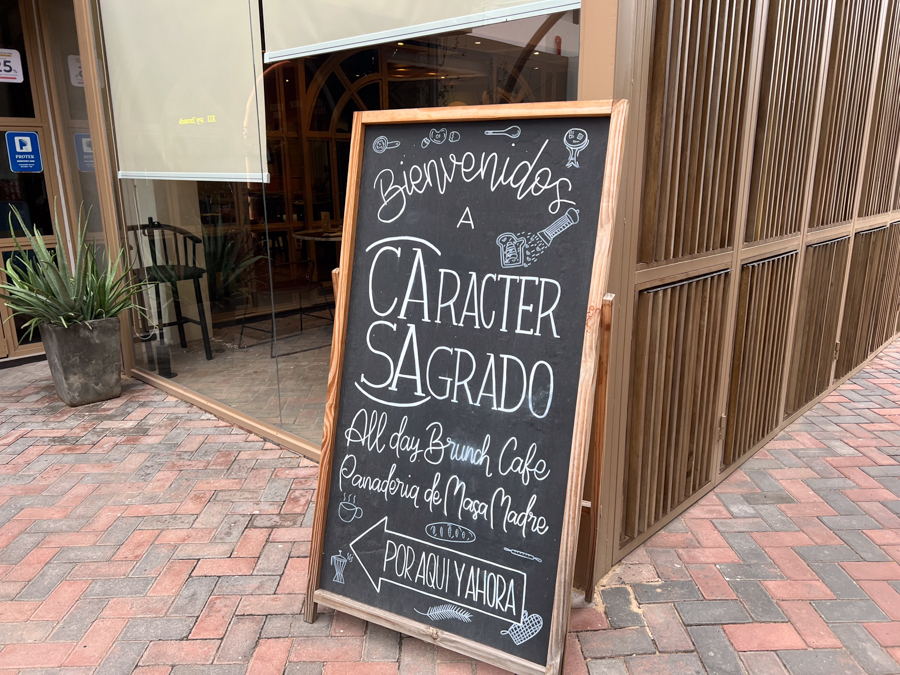 Bienvenidos
A
CARACTER
SAGRADO
All day Brunch Cafe
Panaderia de Masa Madre
POR AQUI Y AHORA
PROTER